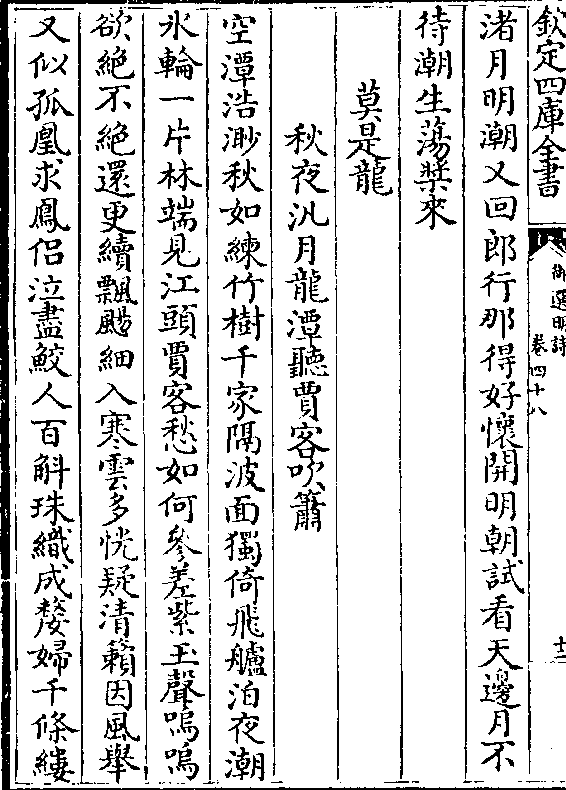 欽定四庫全書
御選明詩
卷四十八
十二
渚月明潮又回郎行那得好懷開明朝試看天邊月不
待潮生蕩槳來
莫是龍
秋夜汎月龍潭聽賈客吹簫
空潭浩渺秋如練竹樹千家隔波面獨倚飛艫泊夜潮
氷輪一片林端見江頭賈客愁如何參差紫玉聲嗚嗚
欲絶不絶還更續飄颺細入寒雲多恍疑清籟因風舉
又似孤凰求鳳侣泣盡鮫人百斛珠織成嫠婦千條縷